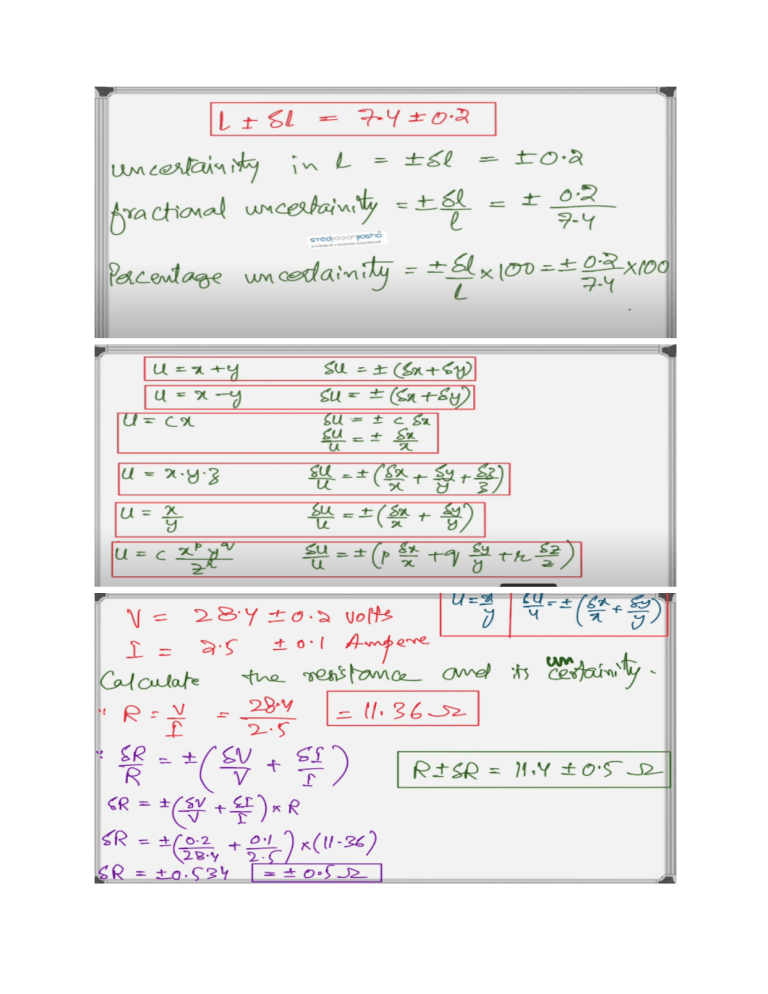 L ± δl = 7.4 ± 0.2
uncertainity in L = ±δl = ±0.2
fractional uncertainity = ± δl/l = ± 0.2/7.4
Percentage uncertainity = ± δl/L × 100 = ± 0.2/7.4 × 100
u = x + y δu = ± (δx + δy)
u = x - y δu = ± (δx + δy)
u = cx δu = ± c δx
δu/u = ± δx/x
u = x · y · z δu/u = ± (δx/x + δy/y + δz/z)
u = x/y δu/u = ± (δx/x + δy/y)
u = c x^p y^q / z^r δu/u = ± (p δx/x + q δy/y + r δz/z)
u = x/y δu/u = ± (δx/x + δy/y)
V = 28.4 ± 0.2 volts
I = 2.5 ± 0.1 Ampere
Calculate the resistance and its uncertainity.
∵ R = V/I = 28.4/2.5 = 11.36 Ω
∵ δR/R = ± (δV/V + δI/I)
R ± δR = 11.4 ± 0.5 Ω
δR = ± (δV/V + δI/I) × R
δR = ± (0.2/28.4 + 0.1/2.5) × (11.36)
δR = ±0.534 = ± 0.5 Ω